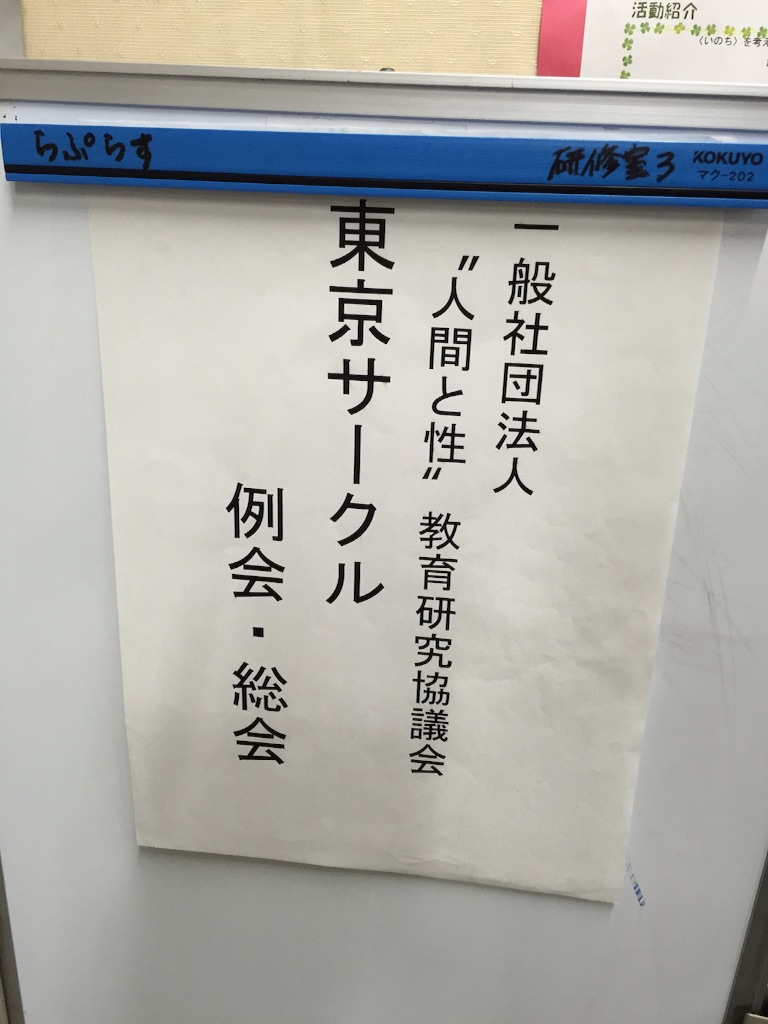 活動紹介
〈いのち〉を考え
らぷらす
研修室3
KOKUYO
マク-202
一般社団法人
〝人間と性〟教育研究協議会
東京サークル
例会・総会